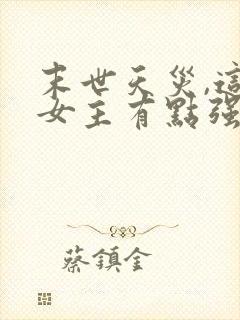 末世天災,這
女主有點强
蔡鎮金